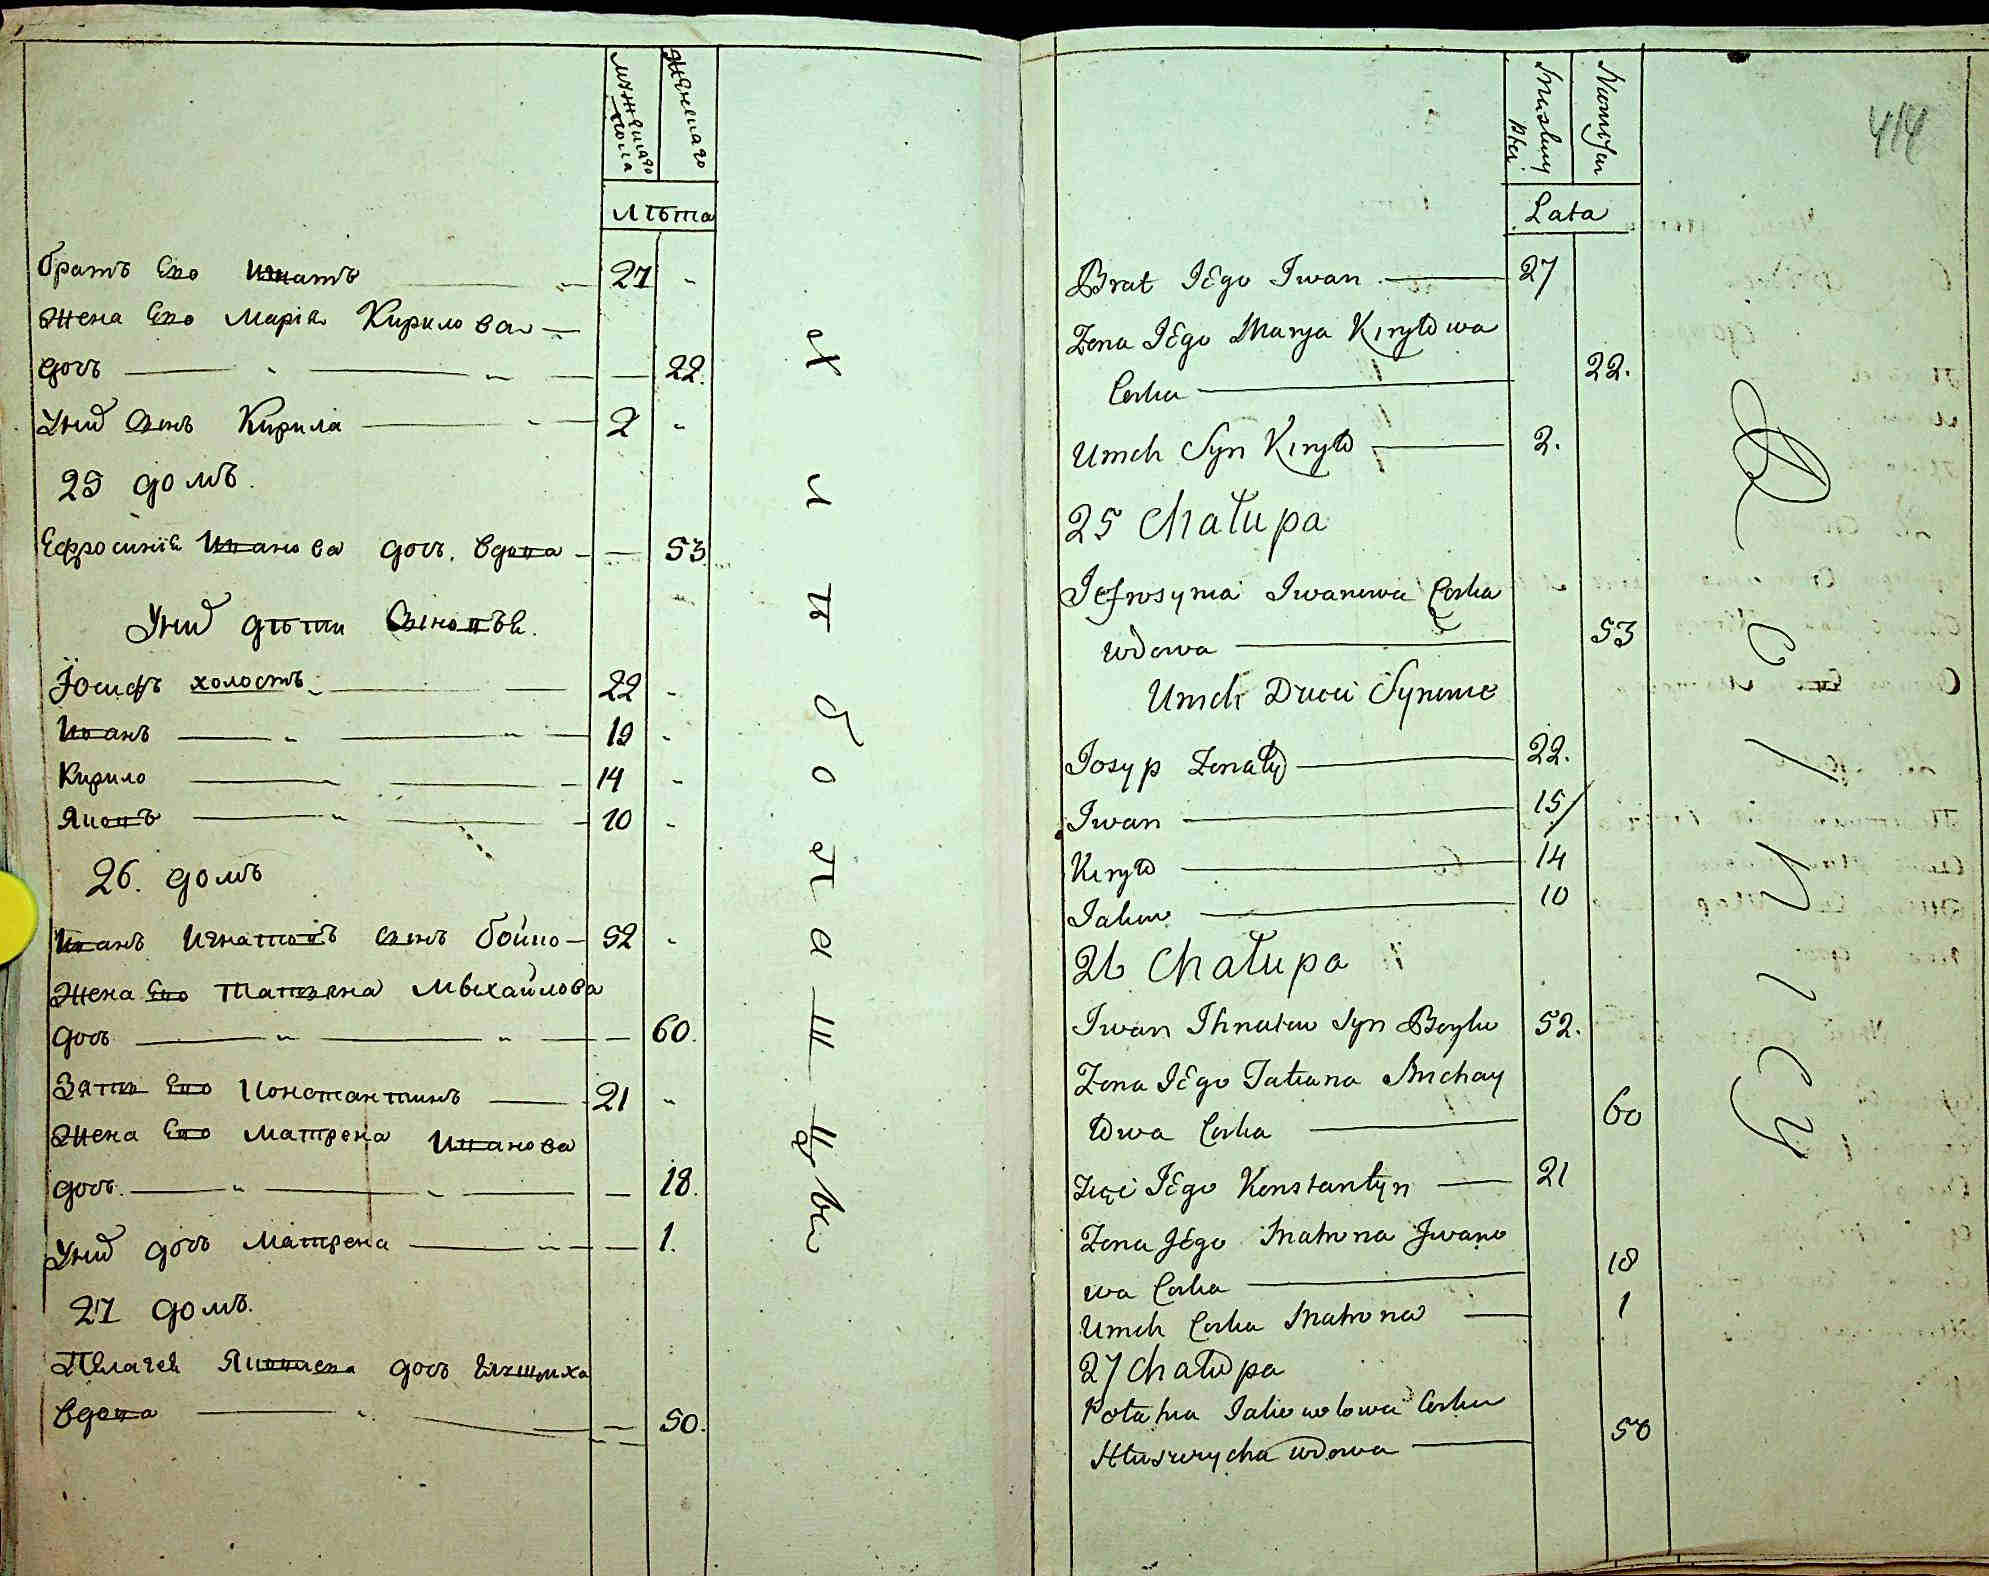 мужескаго пола
женскаго
лѣта
братъ Его Игнатъ 27 -
Жена Его Марія Кирилова
дочъ 22.
У нид сынъ Кирила 2 -
25 домъ.
Ефросинія Иванова дочъ. вдова - 53
У нид дѣти Сыновѣя.
Іосифъ холостъ 22 -
Иванъ 19 -
Кирило 14 -
Яковъ 10 -
26. домъ
Иванъ Игнатовъ сынъ бойко 52 -
Жена Его Татьяна Михайлова
дочъ 60.
Зятъ Его Константинъ 21 -
Жена Его Матрена Иванова
дочъ. 18.
У нид дочъ Матрена 1.
27 домъ.
Пелагея Яковлева дочъ
вдова 50.
хлѣбопашцы
414
Męskiey Płci
Lata
Brat Iego Iwan 27
Zona Iego Marya Kiryłowa
Corka 22.
U nich Syn Kiryło 2.
25 Chałupa
Iefrosynia Iwanowa Corka
wdowa 53
U nich Dzieci Synowie
Iosyp Zonaty 22.
Iwan 15/
Kiryło 14
Iakow 10
26 Chałupa
Iwan Ihnatow Syn Boyko 52.
Zona Iego Tatiana Michay
łowa Corka 60
Zięć Iego Konstantyn 21
Zona Iego Matrona Iwano
wa Corka 18
U nich Corka Matrona 1
27 Chałupa
Połahia Iakowolowa Corka
Hłuszczycha wdowa 50
Rolnicy